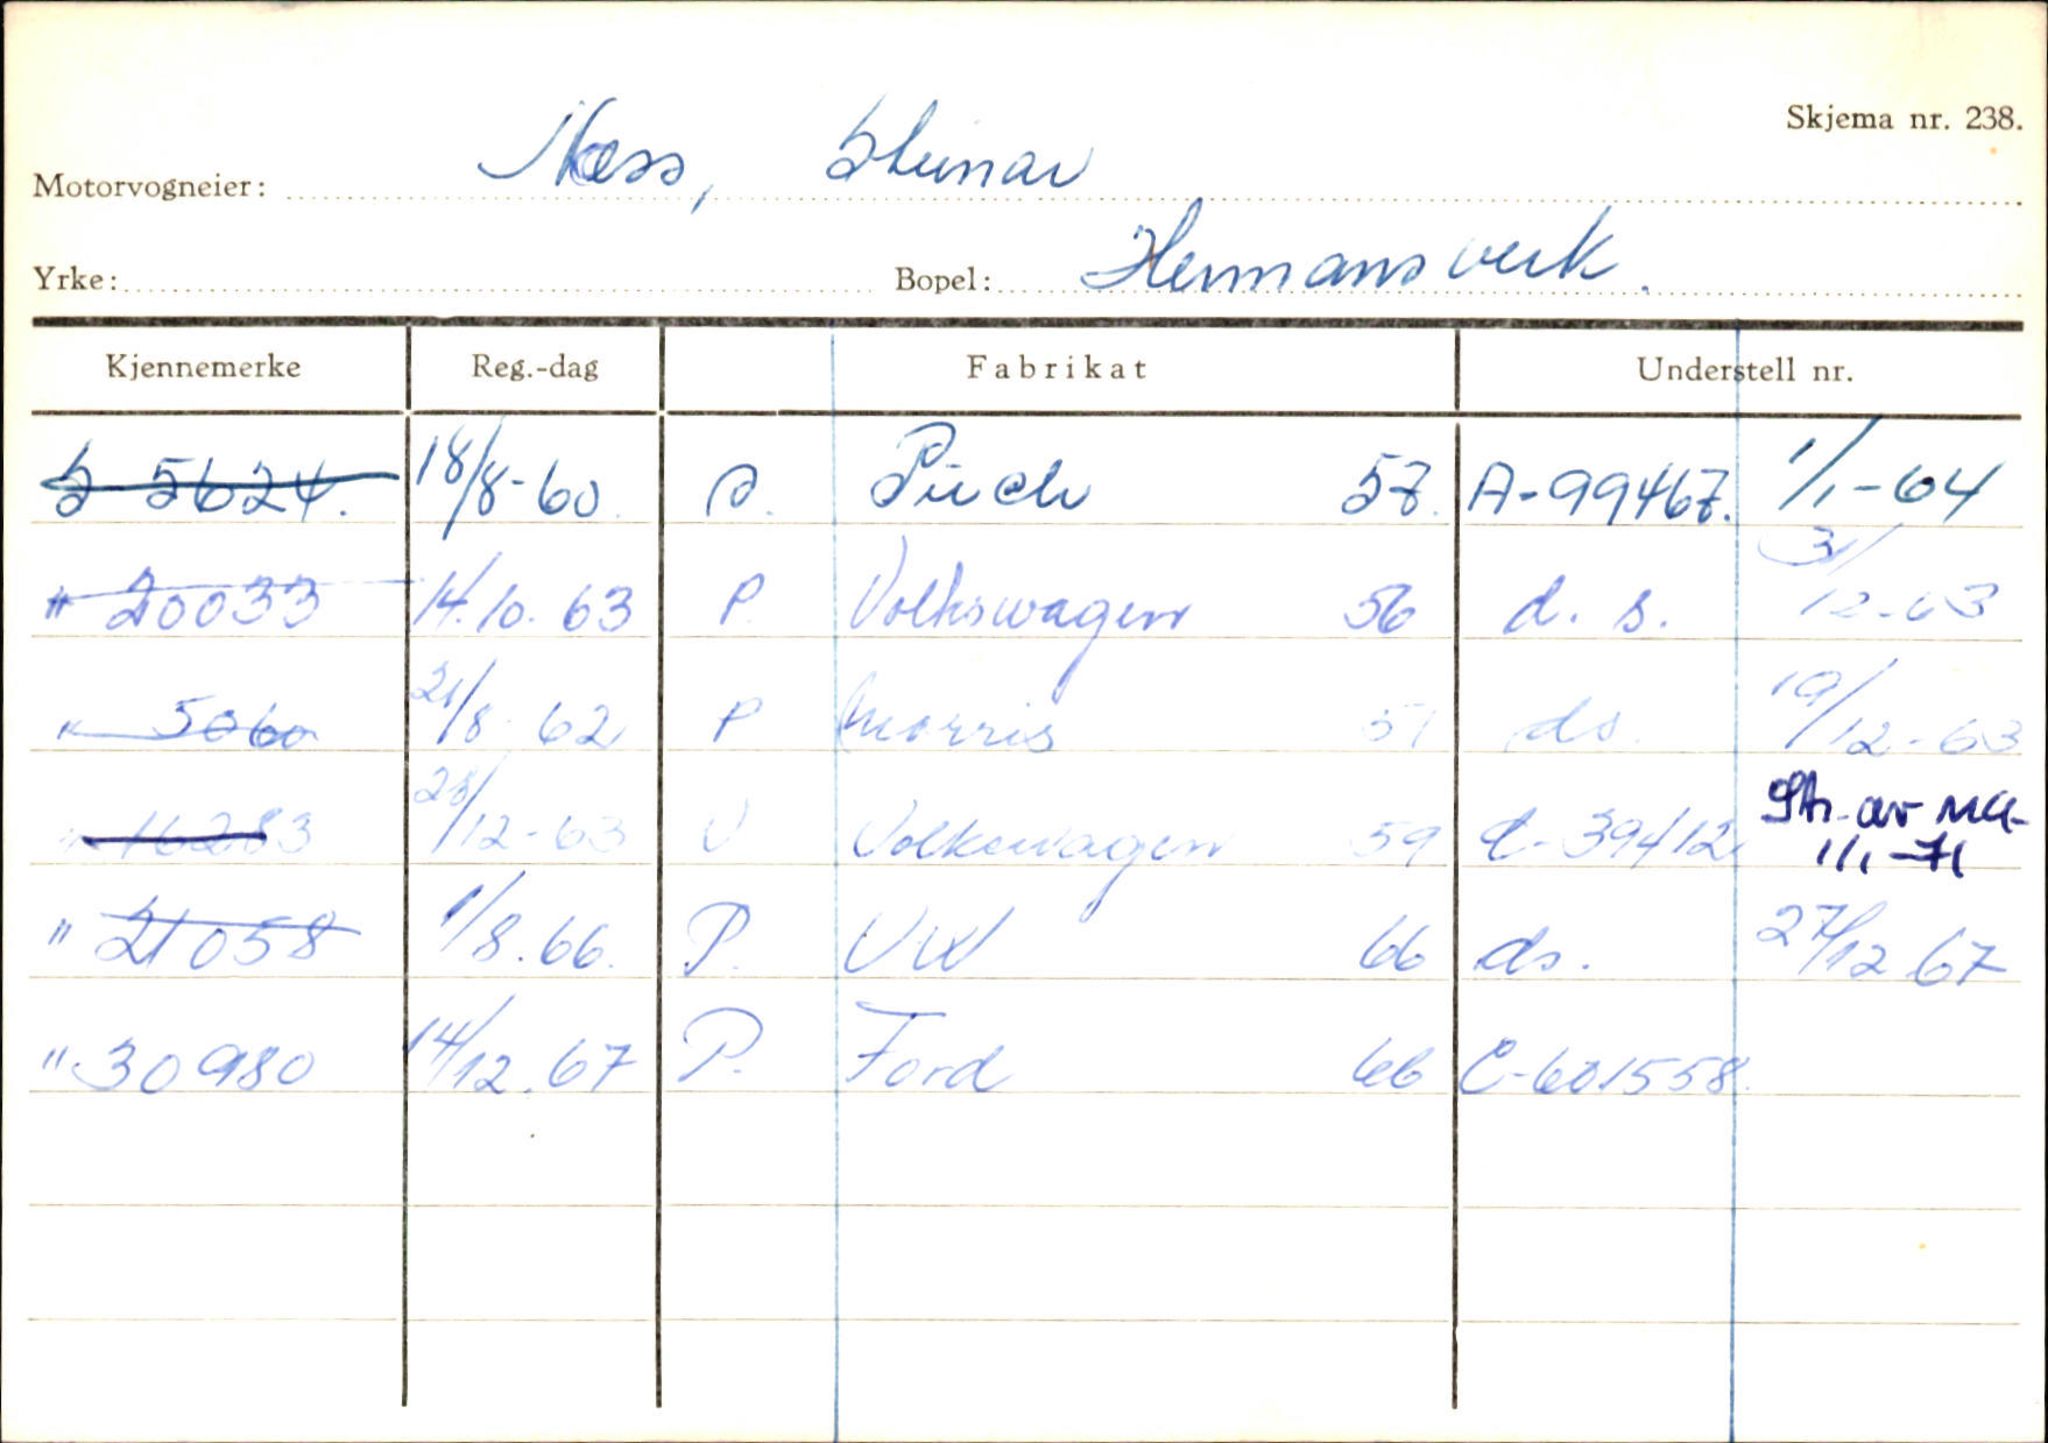 Skjema nr. 238.
Motorvogneier: Næss, Steinar
Yrke: Bopel: Hermansverk.
Kjennemerke Reg.-dag Fabrikat Understell nr.
S 5624. 18/8-60 S. Puch 57. A-99467. 1/1-64
" 20033 14.10.63 P. Volkswagen 56 d.s. 3/12-63
" 5060 21/8 62 P Morris 51 ds. 19/12-63
" 16283 23/12-63 V Volkswagen 59 C-39412 Str. av
1/1-71
" 21058 1/8.66. P. VW 66 ds. 27/12 67
" 30980 14/12.67 P. Ford 66 C-601558.